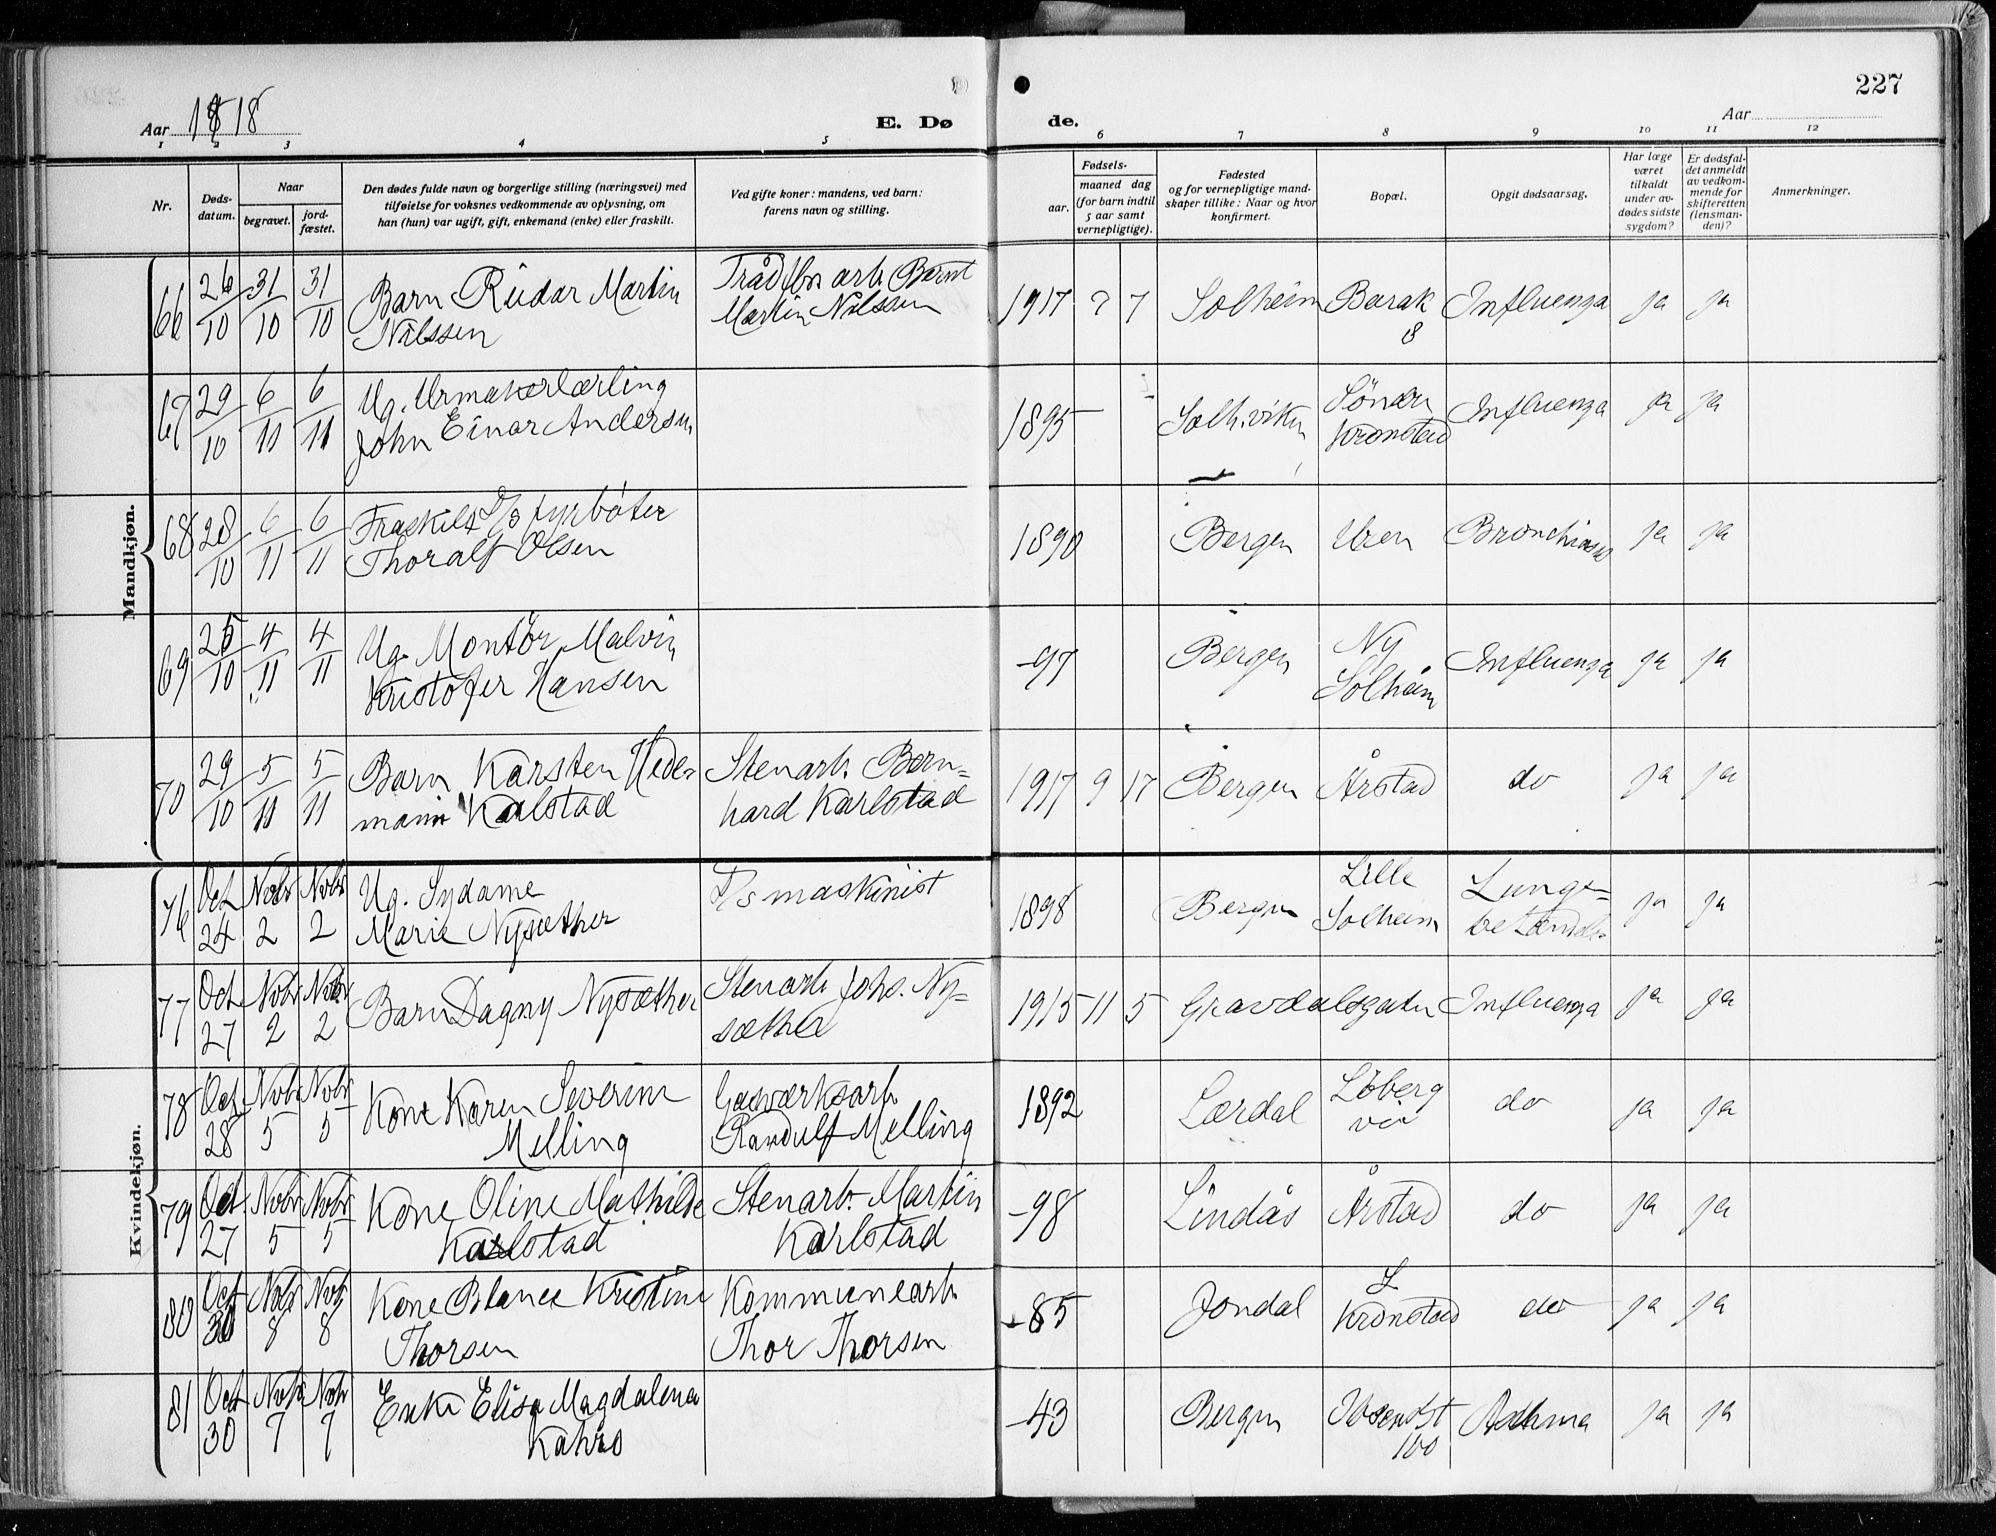 227
Aar 1918
E. Døde.
Aar
1 2 3 4 5 6 7 8 9 10 11 12
Nr.
Døds-
datum.
Naar
begravet.
jord-
fæstet.
Den dødes fulde navn og borgerlige stilling (næringsvei) med
tilføielse for voksnes vedkommende av oplysning, om
han (hun) var ugift, gift, enkemand (enke) eller fraskilt.
Ved gifte koner: mandens, ved barn:
farens navn og stilling.
Fødsels-
aar.
maaned dag
(for barn indtil
5 aar samt
vernepligtige).
Fødested
og for vernepligtige mand-
skaper tillike: Naar og hvor
konfirmert.
Bopæl.
Opgit dødsaarsag.
Har læge
været
tilkaldt
under av-
dødes sidste
sygdom?
Er dødsfal-
det anmeldt
av vedkom-
mende for
skifteretten
(lensman-
den)?
Anmerkninger.
Mandkjøn.
66 26/10 31/10 31/10 Barn Reidar Martin Nilssen Trådfbr arb. Bernt Martin Nilssen 1917 7 7 Solheim Barak 8 Influenza ja ja
67 29/10 6/11 6/11 Ug. Urmakerlærling John Einar Andersen 1895 Solh.viken Søndre Kronstad Influenza ja ja
68 28/10 6/11 6/11 Fraskilt D/s fyrbøter Thoralf Olsen 1890 Bergen Uren ja ja
69 25/10 4/11 4/11 Ug. Montør Malvin Kristofer Hansen -97 Bergen Ny Solheim Influenza ja ja
70 29/10 5/11 5/11 Barn Karsten Hedemann Karlstad Stenarb. Bernhard Karlstad 1917 9 17 Bergen Årstad do ja ja
Kvindekjøn.
76 Oct 24 Nobr 2 Nobr 2 Ug. Sydame Marie Nysæther D/s maskinist 1898 Bergen Lille Solheim Lungebetændelse ja ja
77 Oct 27 Nobr 2 Nobr 2 Barn Dagny Nysæther Stenarb Johs. Nysæther 1915 11 5 Gravdalsgaten Influenza ja ja
78 Oct 28 Nobr 5 Nobr 5 Kone Karen Severine Melling Gasværksarb Randulf Melling 1892 Lærdal Løbergvei do ja ja
79 Oct 27 Nobr 5 Nobr 5 Kone Oline Mathilde Karlstad Stenarb. Martin Karlstad -98 Lindås Årstad do ja ja
80 Oct 30 Nobr 8 Nobr 8 Kone Blanca Kristine Thorsen Kommunearb Thor Thorsen -85 Jondal L Kronstad do ja ja
81 Oct 30 Nobr 7 Nobr 7 Enke Elisa Magdalena Kahrs -43 Bergen Ibsensgt 100 Asthma ja ja